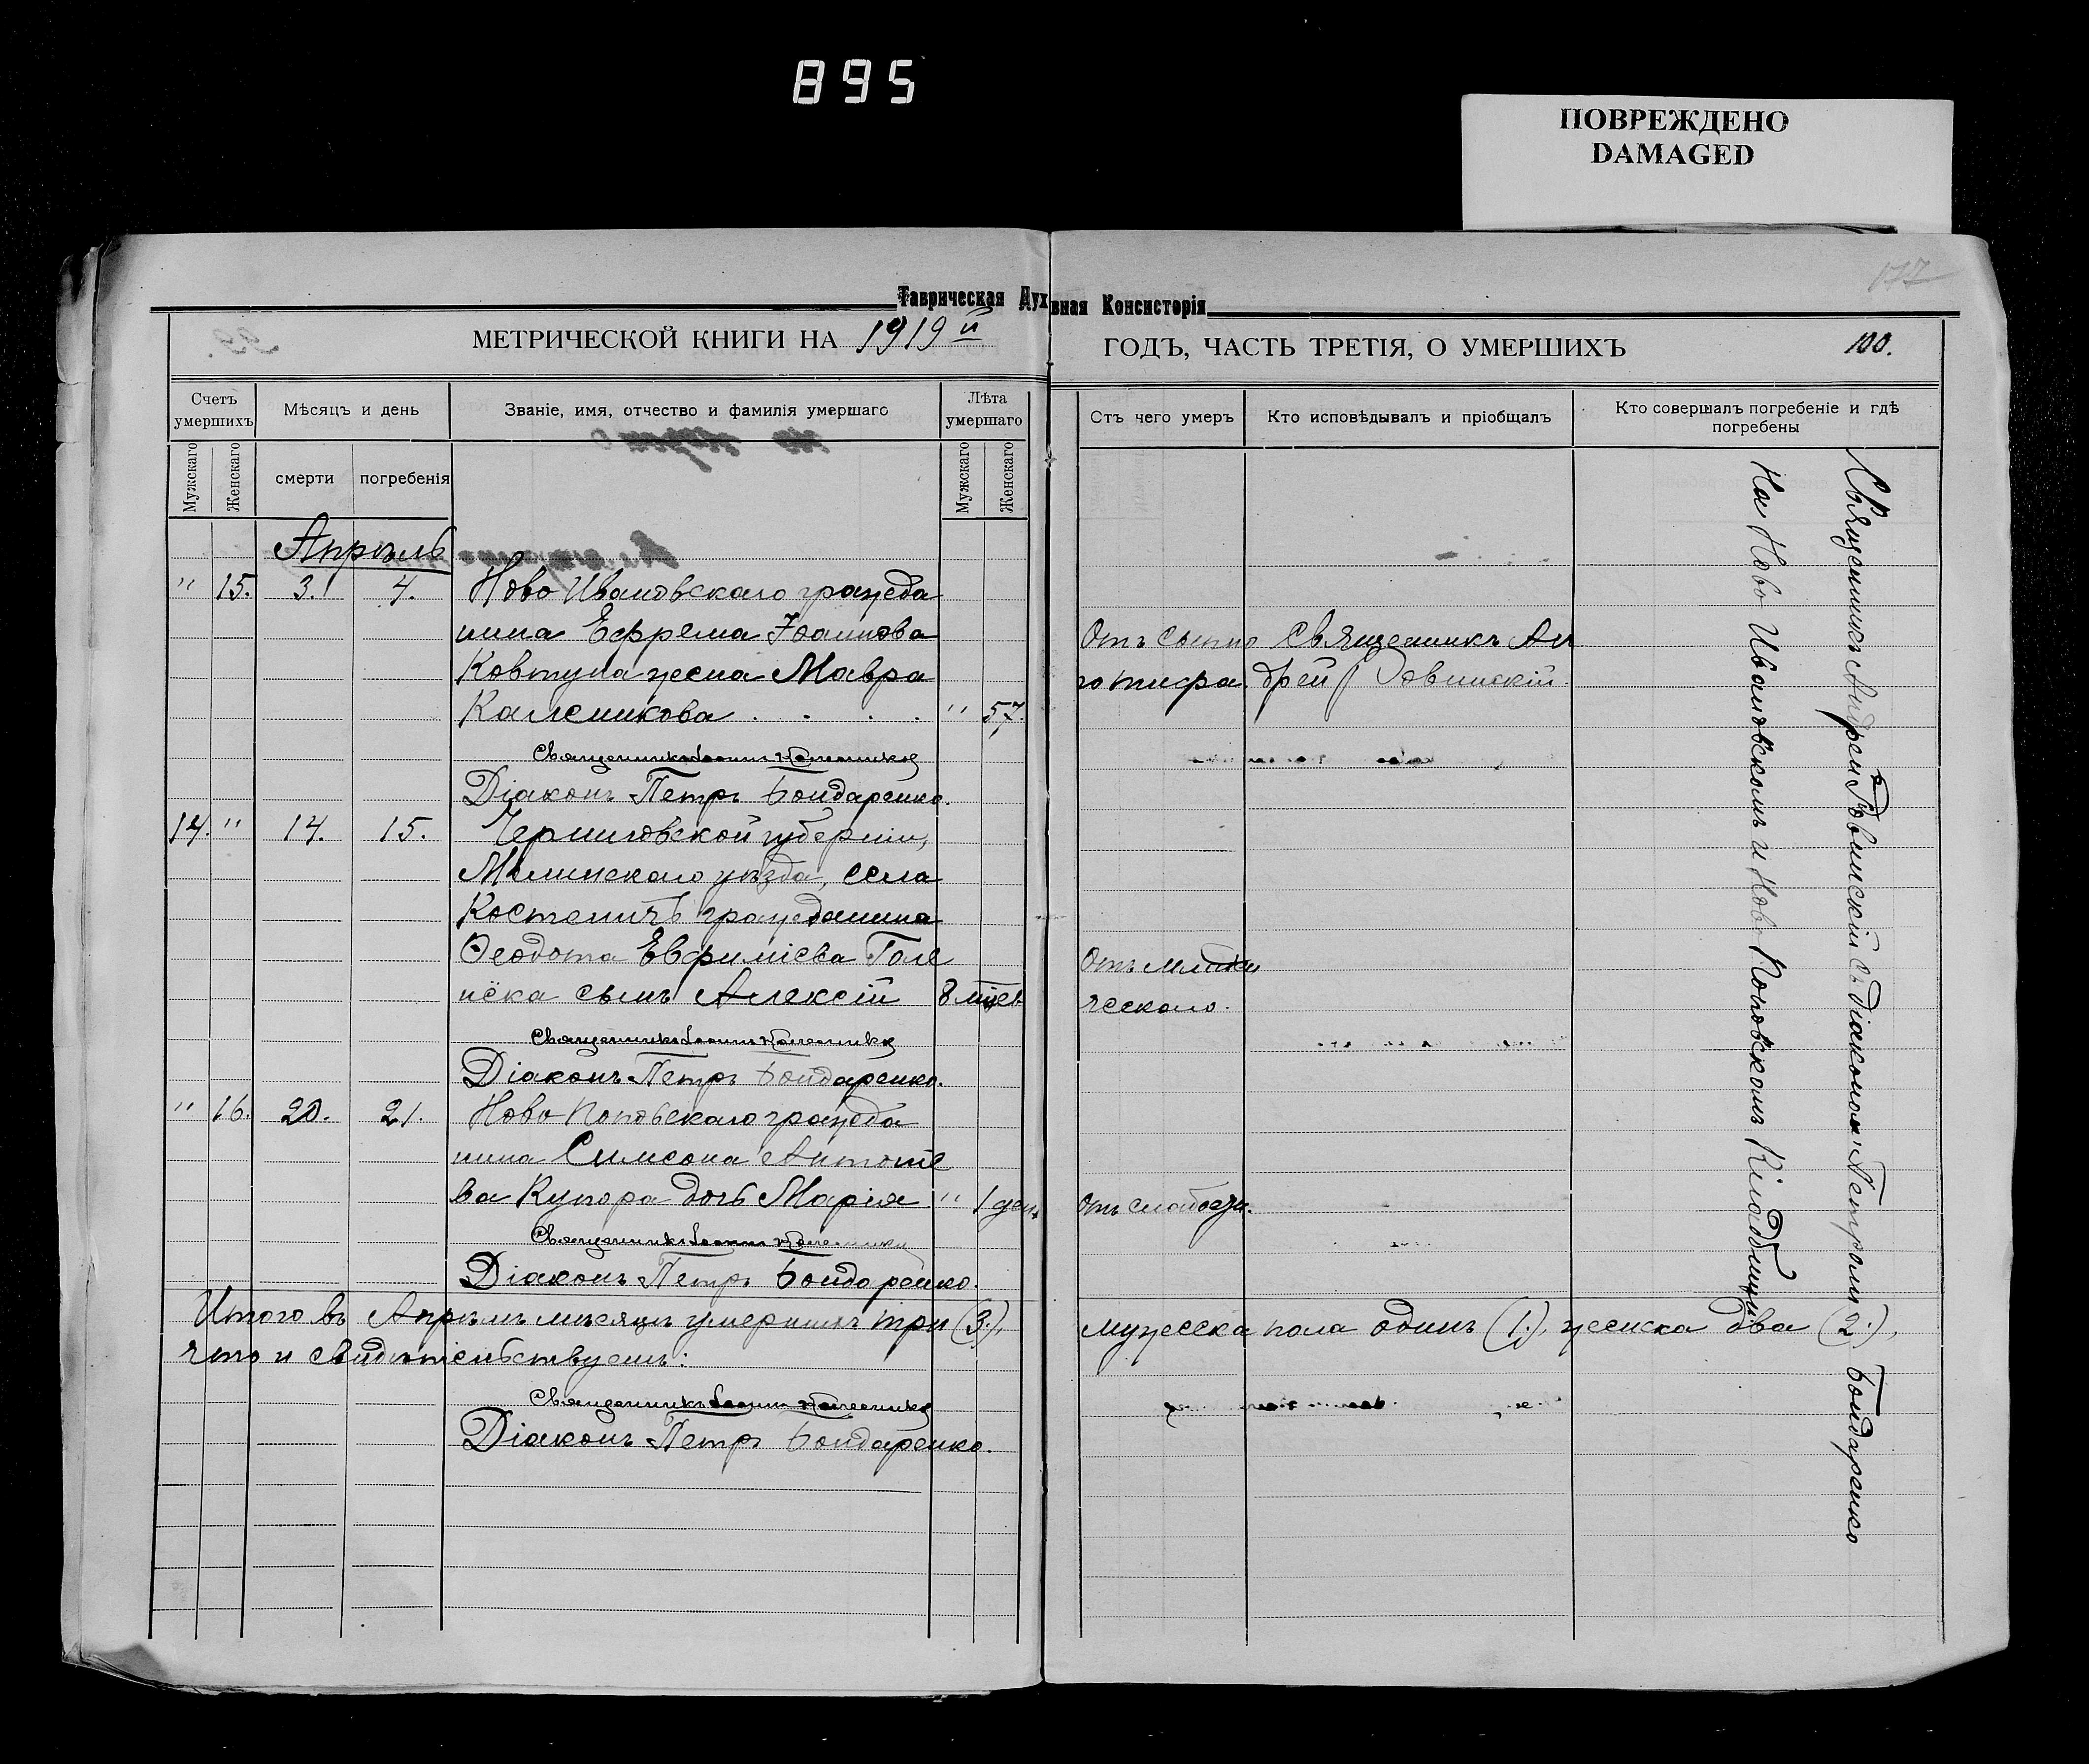 895
ПОВРЕЖДЕНО
DAMAGED
177
Таврическая Духовная Консисторія
МЕТРИЧЕСКОЙ КНИГИ НА 1919й ГОДЪ, ЧАСТЬ ТРЕТІЯ, О УМЕРШИХЪ 100.
Счетъ умершихъ
Мѣсяцъ и день
Званіе, имя, отчество и фамилія умершаго
Лѣта умершаго
Стъ чего умеръ
Кто исповѣдывалъ и пріобщалъ
Кто совершалъ погребеніе и гдѣ погребены
Мужскаго
Женскаго
смерти
погребенія
Мужскаго
Женскаго
Апрѣль
" 15. 3. 4. Ново Ивановскаго гражда
нина Ефрема Іоаннова
Ковтуна жена Мавра
Каленикова . . . . " 57.
Отъ сыпно
го тифа.
Священникъ Ан
дрей Ровинскій.
Священникъ Іоаннъ
Діаконъ Петръ Бондаренко.
14. " 14. 15. Черниговской губерніи,
Мглинскаго уѣзда, села
Костеничъ гражданина
Ѳеодота Евфиміева Голе
нёка сынъ Алексій 8 мѣс.
ческаго.
Священникъ Іоаннъ
Діаконъ Петръ Бондаренко.
" 16. 20. 21. Ново Поповскаго гражда
нина Симеона Антоніе
ва Купора дочь Марія " 1 день
Отъ слабости.
Священникъ Іоаннъ
Діаконъ Петръ Бондаренко.
Итого въ Апрѣлѣ мѣсяцѣ умершихъ три (3.), мужеска пола одинъ (1.), женска два (2.),
что и свидѣтельствуемъ:
Священникъ Іоаннъ
Діаконъ Петръ Бондаренко.
Священникъ Андрей Ровинскій съ діакономъ Петромъ Бондаренко
На Ново Ивановскомъ и Ново Поповскомъ кладбищѣ